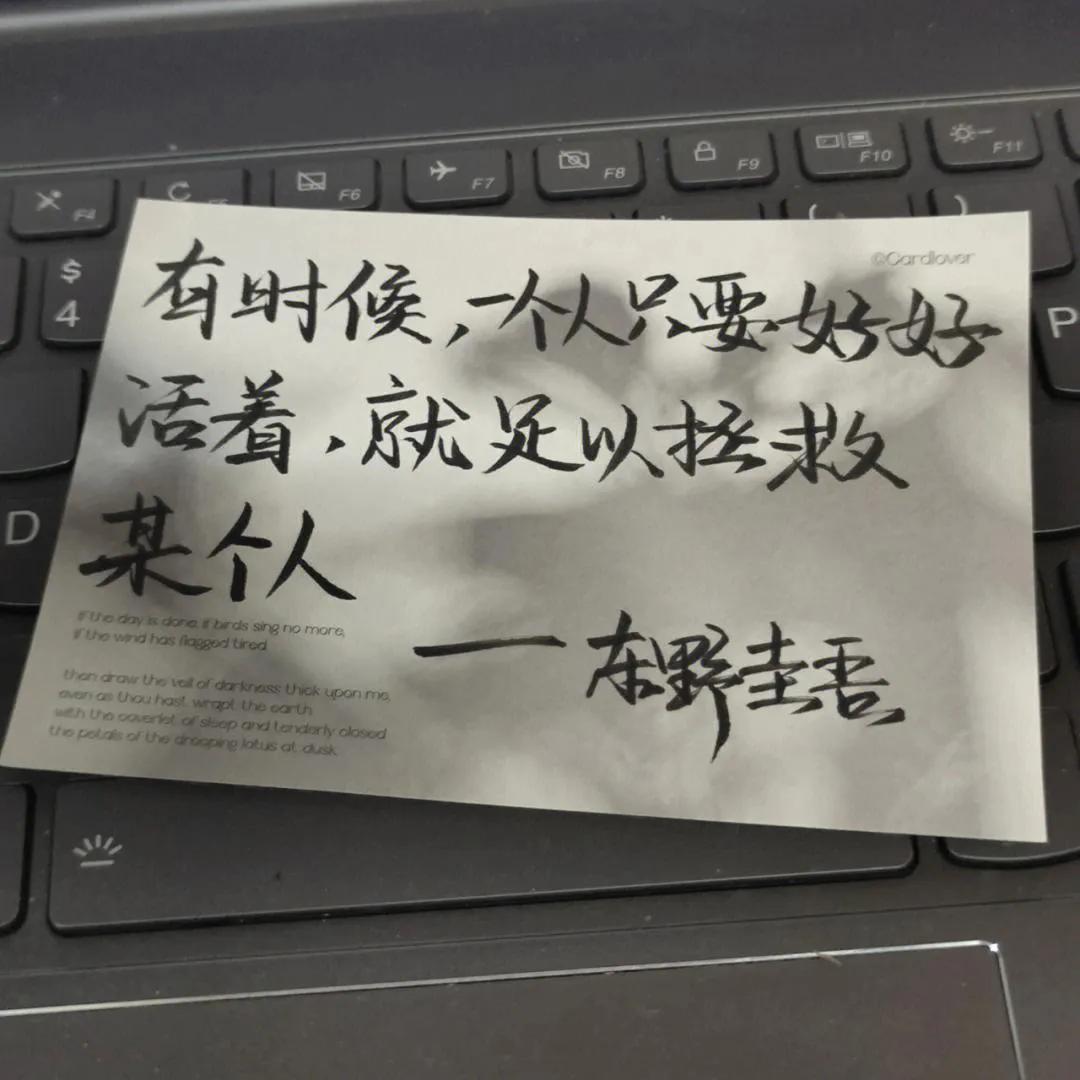 F4
F6
F7
F8
F9
F10
F11
$
4
P
D
©Cardlover
有时候,一个人只要好好
活着,就足以拯救
某个人
——东野圭吾
If the day is done, if birds sing no more,
if the wind has flagged tired
then draw the veil of darkness thick upon me,
even as thou hast wrapt the earth
with the coverlet of sleep and tenderly closed
the petals of the drooping lotus at dusk